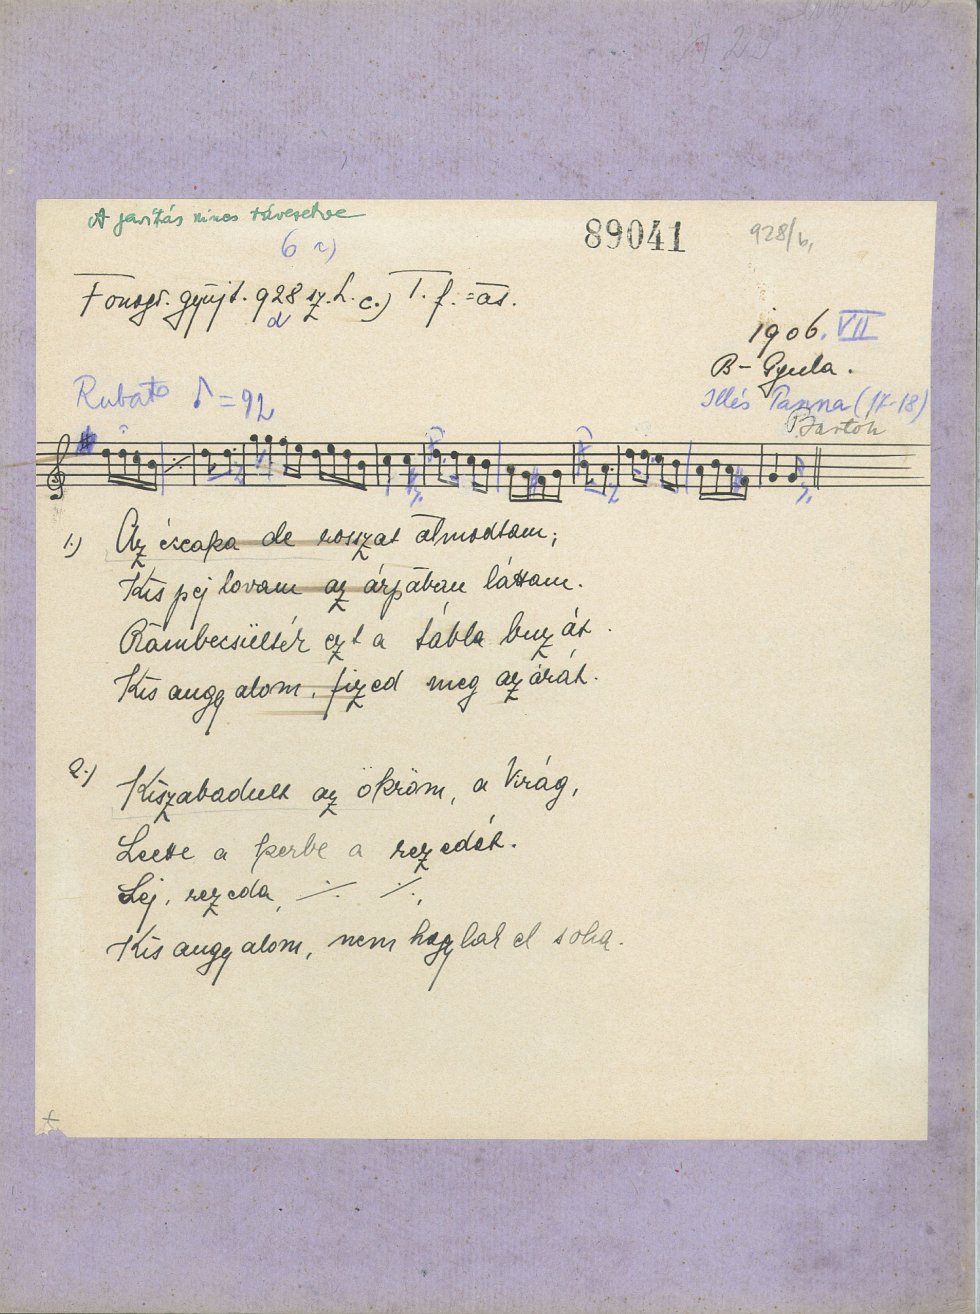 A javítás nincs rávezetve
89041
928/b,
6 a)
Fonogr. gyűjt. 928 sz. h. c.) T. f. = as.
d
1906. VII
B- Gyula.
Rubato ♪ = 92
Illés Panna (17-18)
Bartók
1.) Az écaka de rosszat álmodtam;
Kis pej lovam az árpában láttam.
Rámbecsültér ezt a tábla buzát.
Kis angyalom, fized meg az árát.
2.) Kiszabadult az ökröm, a Virág,
Leette a kerbe a rezedát.
Lej, rezeda, ./. ./.,
Kis angyalom, nem hagylak el soha.